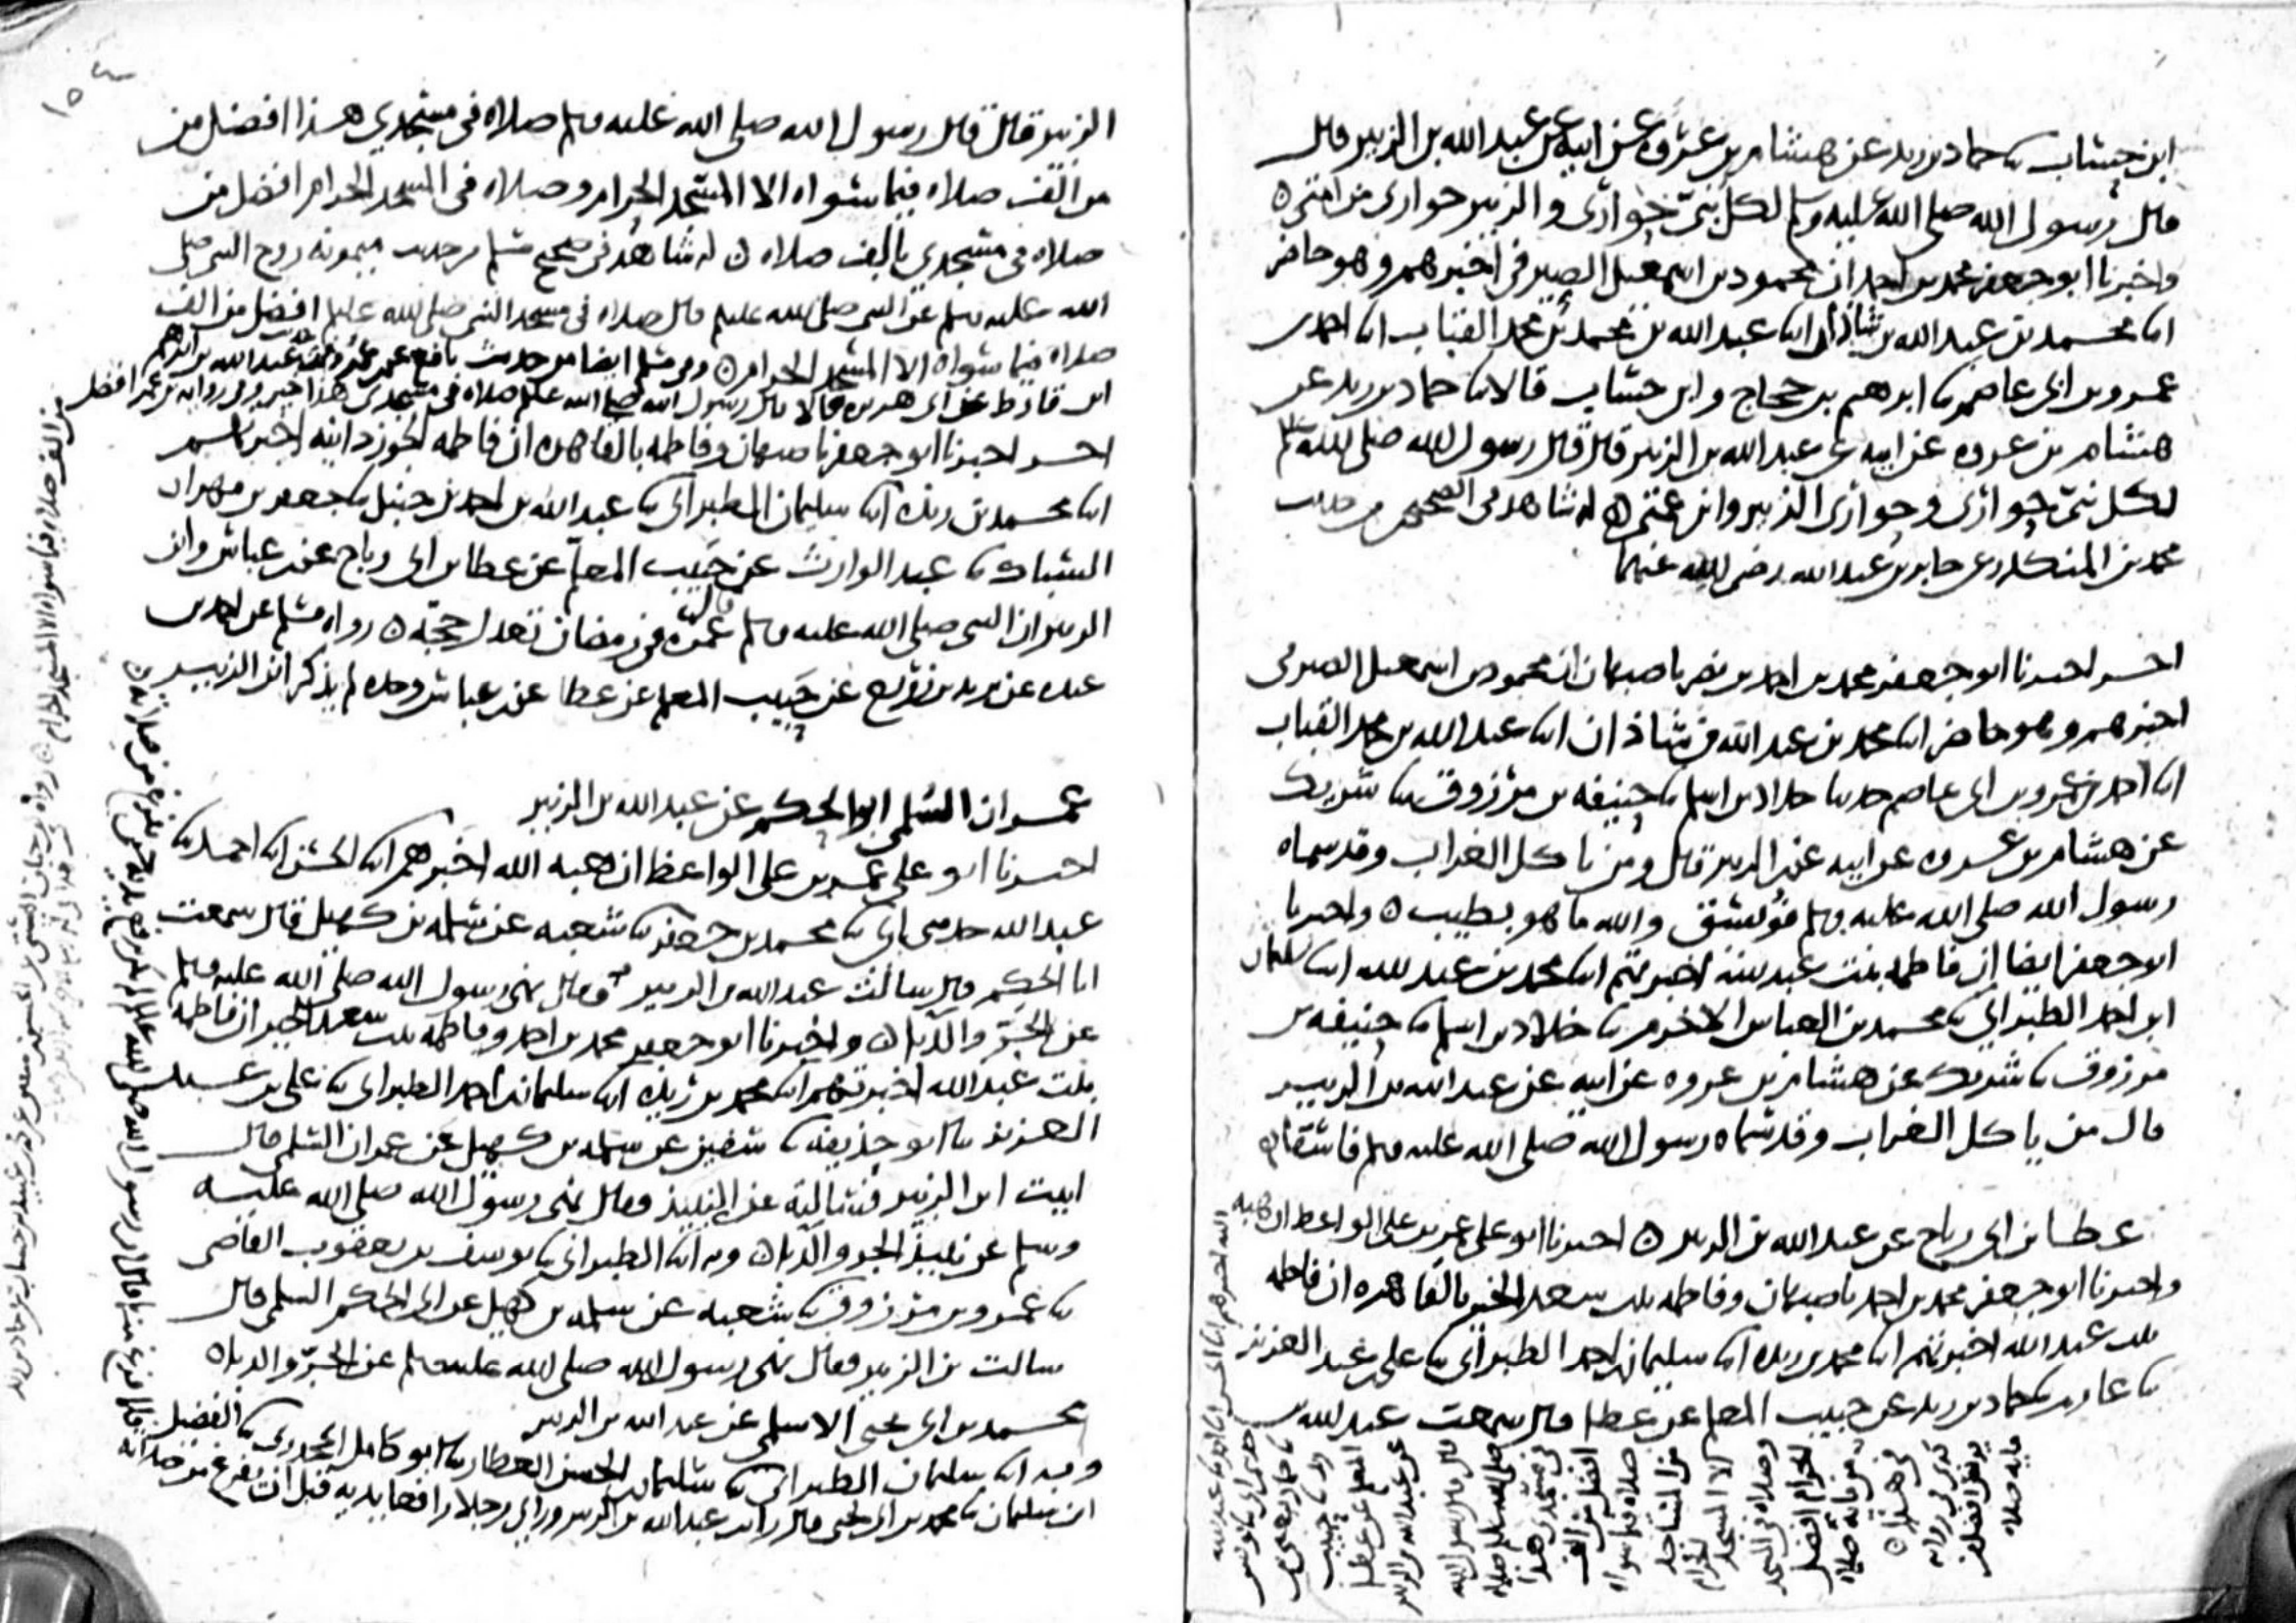 ابن حساب ثنا حماد بن زيد عن هشام بن عروة عن ابيه عن عبد الله بن الزبير قال
قال رسول الله صلى الله عليه وسلم لكل نبي حواري والزبير حواري من امتي ه
واخبرنا ابو جعفر محمد بن احمد ان محمود بن اسمعيل الصيرفي اخبرهم وهو حاضر
ابنا محمد بن عبد الله بن شاذان ابنا عبد الله بن محمد بن محمد القباب ابنا احمد بن
عمرو بن ابي عاصم ثنا ابرهيم بن حجاج وابن حساب قالا ثنا حماد بن زيد عن
هشام بن عروه عن ابيه عن عبد الله بن الزبير قال قال رسول الله صلى الله عليه وسلم
لكل نبي حواري وحواري الزبير وابن عمتي ه له شاهد في الصحيح من حديث
محمد بن المنكدر عن جابر بن عبد الله رضي الله عنهما
اخر اخبرنا ابو جعفر محمد بن احمد بن نصر باصبهان ان محمود بن اسمعيل الصيرفي
اخبرهم وهو حاضر ابنا محمد بن عبد الله بن شاذان ابنا عبد الله بن محمد القباب
ابنا احمد بن عمرو بن ابي عاصم حدثنا خلاد بن اسلم ثنا حنيفه بن مرزوق ثنا شريك
عن هشام بن عروه عن ابيه عن ابن الزبير قال ومن ياكل الغراب وقد سماه
رسول الله صلى الله عليه وسلم فويسق والله ما هو بطيب ه واخبرنا
ابو جعفر ايضا ان فاطمه بنت عبد الله اخبرتهم ابنا محمد بن عبد الله ابنا سليمان
ابن احمد الطبراني ثنا محمد بن العباس الاخرم ثنا خلاد بن اسلم ثنا حنيفه بن
مرزوق ثنا شريك عن هشام بن عروه عن ابيه عن عبد الله بن الزبير
قال من ياكل الغراب وقد سماه رسول الله صلى الله عليه وسلم فاسقا ه
عطا بن ابي رباح عن عبد الله بن الزبير ه اخبرنا ابو علي عمر بن علي الواعظ ان هبه
الله اخبرهم ابنا الحسن ابنا احمد ثنا عبد الله
واخبرنا ابو جعفر محمد بن احمد باصبهان وفاطمه بنت سعد الخير بالقاهره ان فاطمه
بنت عبد الله اخبرتهم ابنا محمد بن ريذه ابنا سليمان بن احمد الطبراني ثنا علي بن عبد العزيز
ثنا عارم ثنا حماد بن زيد عن حبيب المعلم عن عطا قال سمعت عبد الله بن
حدثني ابي ثنا يونس
ثنا حماد يعني بن
زيد ثنا حبيب
المعلم عن عطا
عن عبد الله بن الزبير
قال قال رسول الله
صلى الله عليه وسلم صلاه
في مسجدي هذا
افضل من الف
صلاه فيما سواه
من المساجد
الا المسجد
الحرام
وصلاه في المسجد
الحرام افضل
من مايه صلاه
في هذا ه
مايه صلاه
الزبير قال قال رسول الله صلى الله عليه وسلم صلاه في مسجدي هذا افضل من
من الف صلاه فيما سواه الا المسجد الحرام وصلاه في المسجد الحرام افضل من
صلاه في مسجدي بالف صلاه ه له شاهد في صحيح مسلم من حديث ميمونه زوج النبي صلى
الله عليه وسلم عن النبي صلى الله عليه وسلم قال صلاه في مسجد النبي صلى الله عليه وسلم افضل من الف
صلاه فيما سواه الا المسجد الحرام ه وفي مسلم ايضا من حديث نافع عن بن عمر وفيه عبد الله بن ابرهيم
ابن قارظ عن ابي هريره قالا قال رسول الله صلى الله عليه وسلم صلاه في مسجدي هذا خير وفي روايه بن عمر افضل
من الف صلاه فيما سواه الا المسجد الحرام ه
اخر اخبرنا ابو جعفر باصبهان وفاطمه بالقاهره ان فاطمه الجوزدانيه اخبرتهم
ابنا محمد بن ريذه ابنا سليمان الطبراني ثنا عبد الله بن احمد بن حنبل ثنا جعفر بن مهران
السباك ثنا عبد الوارث عن حبيب المعلم عن عطا بن ابي رباح عن بن عباس وابن
الزبير ان النبي صلى الله عليه وسلم قال عمره في رمضان تعدل حجه ه رواه مسلم عن احمد بن
عبده عن يزيد بن زريع عن حبيب المعلم عن عطا عن بن عباس وحده لم يذكر ابن الزبير
عمران السلمي ابو الحكم عن عبد الله بن الزبير
اخبرنا ابو علي عمر بن علي الواعظ ان هبه الله اخبرهم ابنا الحسن ابنا احمد ثنا
عبد الله حدثني ابي ثنا محمد بن جعفر ثنا شعبه عن سلمه بن كهيل قال سمعت
ابا الحكم قال سالت عبد الله بن الزبير فقال نهى رسول الله صلى الله عليه وسلم
عن الجر والدبا ه واخبرنا ابو جعفر محمد بن احمد وفاطمه بنت سعد الخير ان فاطمه
بنت عبد الله اخبرتهم ابنا محمد بن ريذه ابنا سليمان بن احمد الطبراني ثنا علي بن عبد
العزيز ثنا ابو حذيفه ثنا سفين عن سلمه بن كهيل عن عمران السلمي قال
اتيت ابن الزبير فسالته عن النبيذ فقال نهى رسول الله صلى الله عليه
وسلم عن نبيذ الجر والدبا ه وبه ابنا الطبراني ثنا يوسف بن يعقوب القاضي
ثنا عمرو بن مرزوق ثنا شعبه عن سلمه بن كهيل عن ابي الحكم السلمي قال
سالت بن الزبير فقال نهى رسول الله صلى الله عليه وسلم عن الجر والدبا ه
محمد بن ابي يحيى الاسلمي عن عبد الله بن الزبير
وبه ابنا سليمان الطبراني ثنا سليمان بن الحسن العطار ثنا ابو كامل الجحدري ثنا الفضيل
ابن سليمان ثنا محمد بن ابي يحيى قال رايت عبد الله بن الزبير وراى رجلا رافعا يديه قبل ان يفرغ من صلاته
فلما فرغ منها قال ان رسول الله صلى الله عليه وسلم لم يكن يرفع يديه حتى يفرغ من صلاته ه